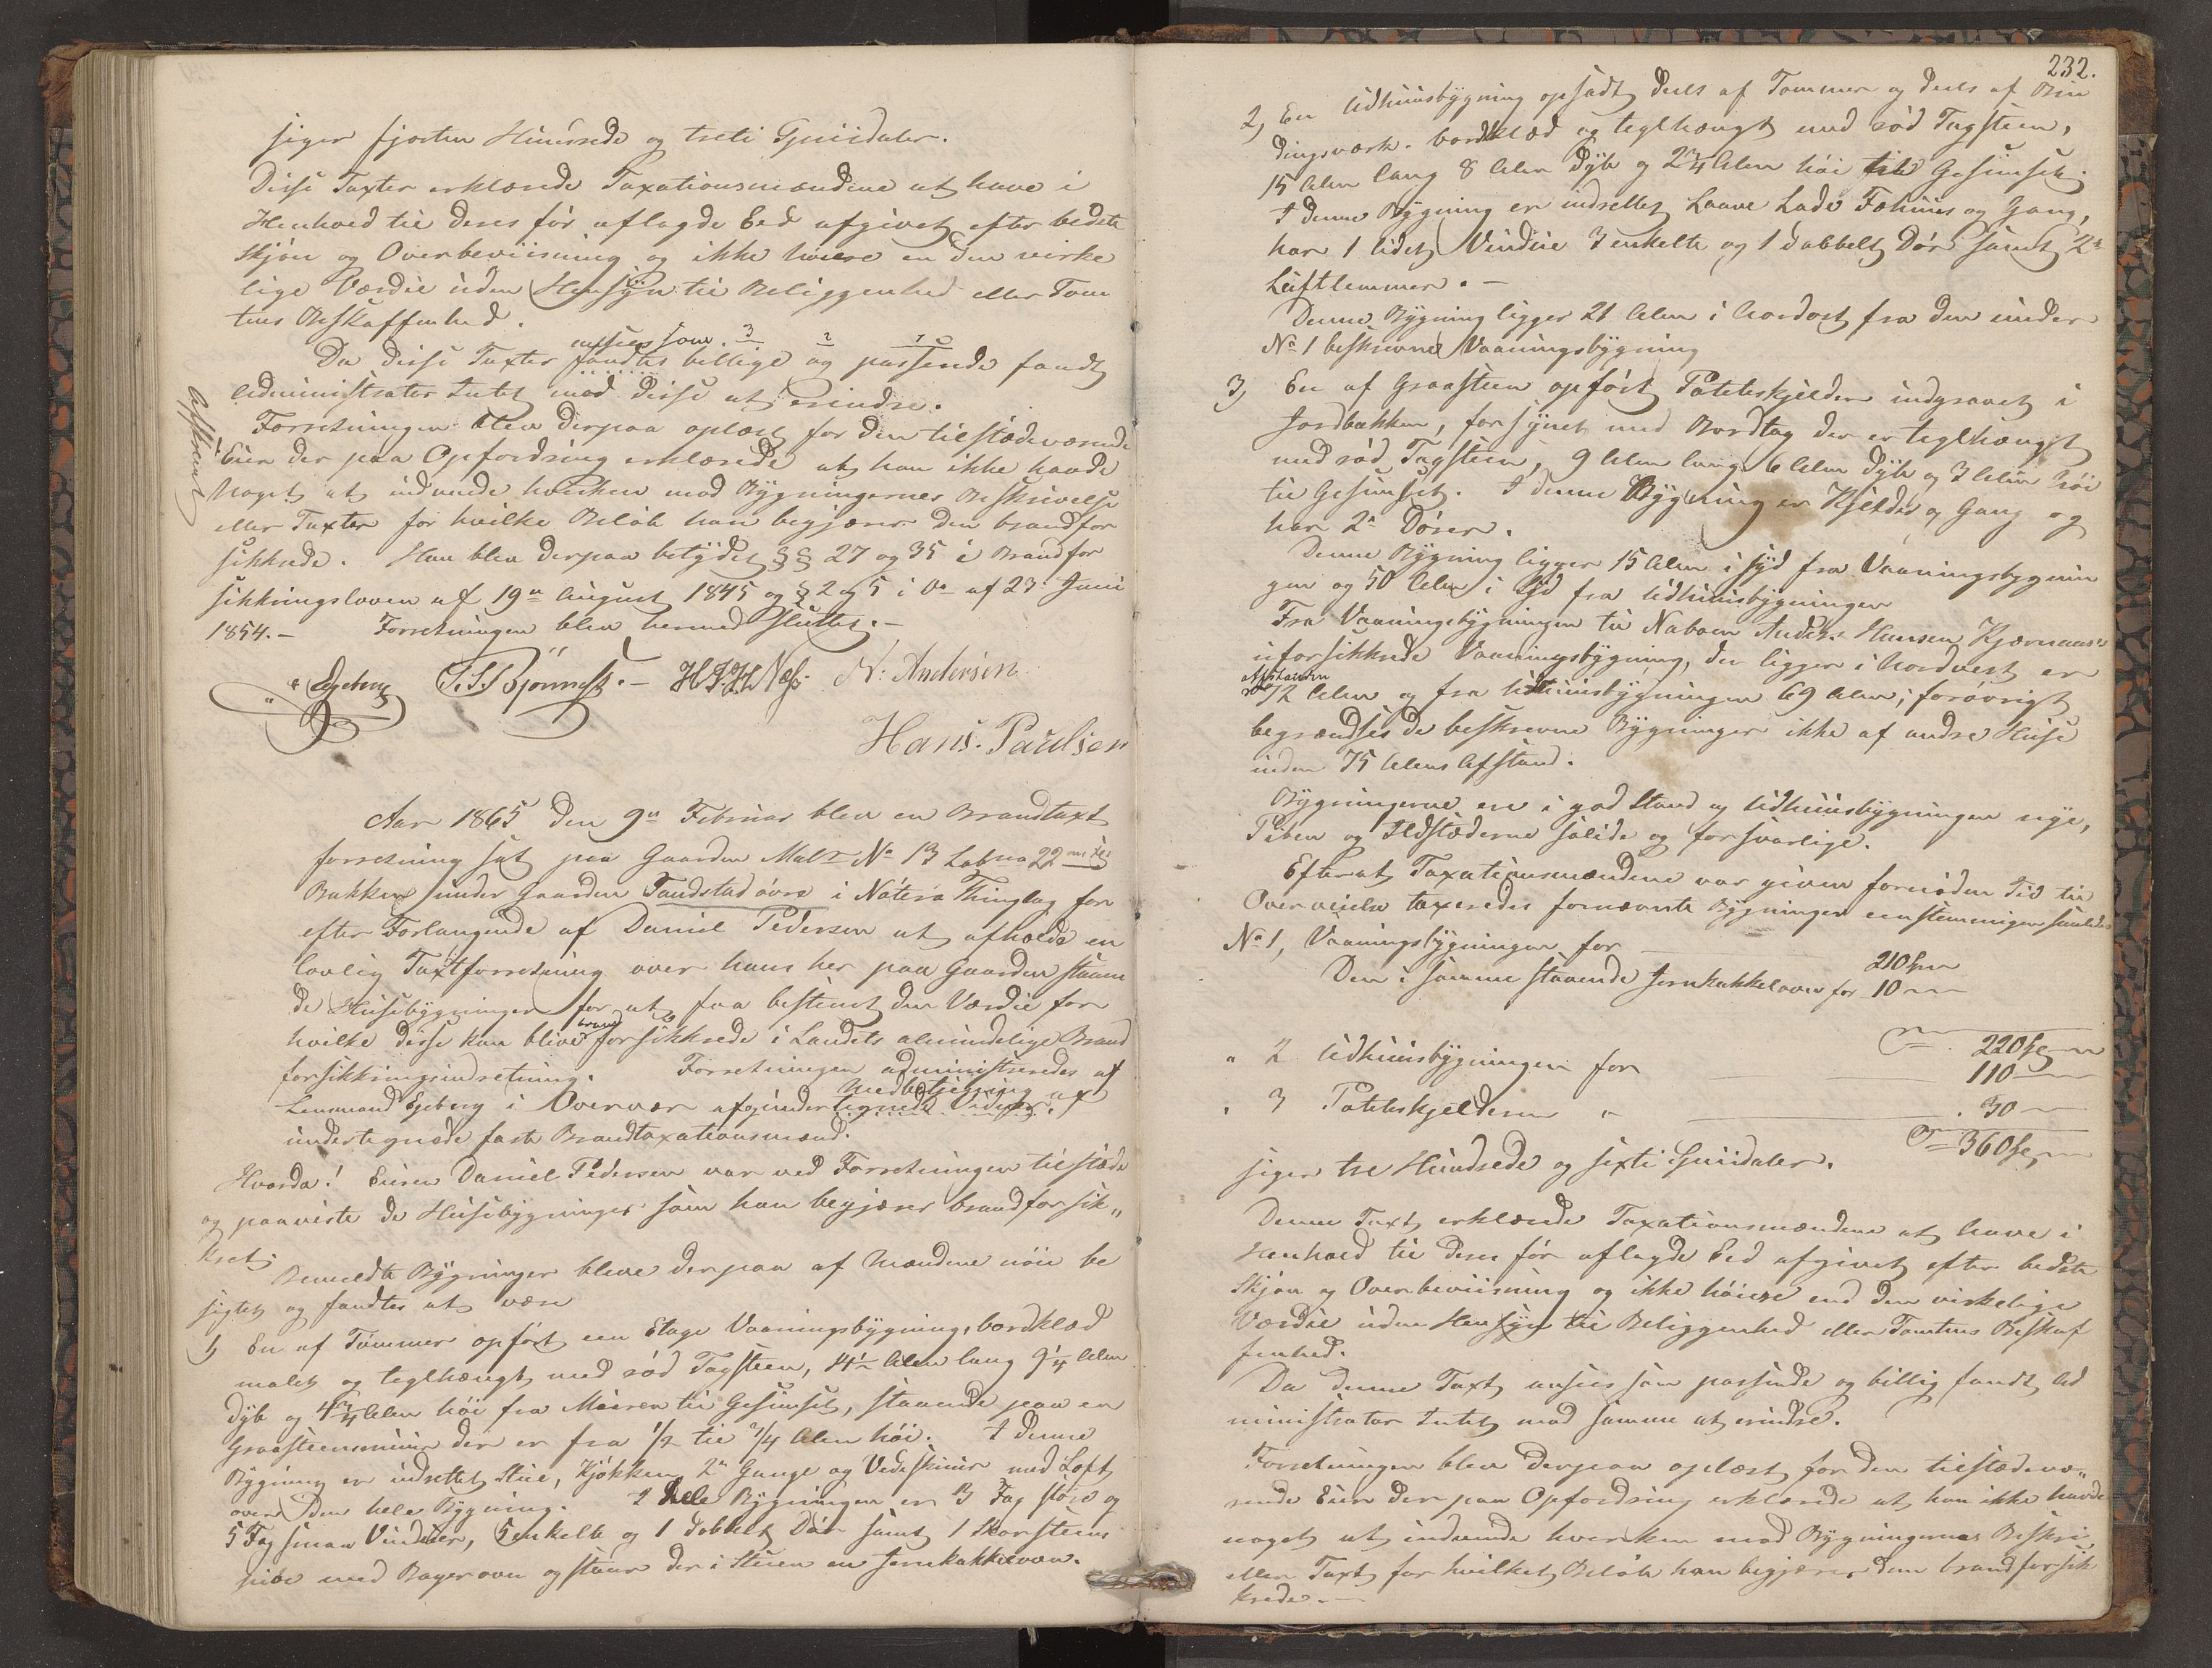 siger fjorten Hundrede og treti Speciedaler.
Disse Taxter erklærede Taxationsmændene at have i
Henhold til deres før aflagde Eed afgivet efter bedste
Skjøn og Overbeviisning og ikke høiere en den virke
lige Værdie uden Hensyn til Beliggenhed eller Tom
tens Beskaffenhed.
ansees som 3 2 1
Da disse Taxter fandtes billige og passende fandt
Administrator Intet mod disse at erindre.
Forretningen blev derpaa oplæst for den tilstædeværende
Eier der paa Opfordring erklærede at han ikke havde
Noget at indvende hverken mod Bygningernes Beskrivelse
eller Taxter for hvilke Beløb han begjærer dem brandfor
sikkrede. Han blev derpaa betydet §§ 27 og 35 i Brandfor
sikkringsloven af 19de August 1845 og § 2 og 5 i do af 23 Juni
1854.- Forretningen blev hermed sluttet.-
Afskrevet
Egeberg H.J.H Næss N: Andersen
Hans. Paulsen
Aar 1865 den 9de Februar blev en Brandtaxt
forretning sat paa Gaarden Matr No 13 Løbno 22
Bakken under Gaarden Tandstad øvre i Nøterø Thinglag for
efter Forlangende af Daniel Pedersen at afholde en
lovlig Taxtforretning over hans her paa Gaarden staaen
de Huusbygninger for at faa bestemt den Værdie for
hvilke disse kan blive brand forsikkrede i Landets almindelige Brand
forsikkringsindretning. Forretningen administreredes af
Lensmand Egeberg i Overvær af
undertegnede faste Brandtaxationsmænd.
Hvorda! Eieren Daniel Pedersen var ved Forretningen tilstæde
og paaviste de Huusbygninger som han begjærer brandforsik„
kret.
Bemeldte Bygninger bleve derpaa af Mændene nøie be
sigtet og fandtes at være
1) En af Tømmer opført een Etage Vaaningsbygning, bordklæd
malet og teglhængt med rød Tagsteen, 14½ Alen lang 9¼ Alen
dyb og 4¾ Alen høi fra Muren til Gesimset, staaende paa en
Graasteensmuur der er fra ½ til ¾ Alen høi. I denne
Bygning er indrettet Stue, Kjøkken, 2de Gange og Vedeskuur med Loft
over den hele Bygning. I hele Bygningen er 3 Fag større og
5 Fag smaa Vinduer, 5 enkelte og 1 dobbelt Dør samt 1 Skorsteens
pibe med Bagerovn og staar der i Stuen en Jernkakkelovn.
232.
2) En Udhuusbygning opsadt deels af Tømmer og deels af Bin
dingsværk. bordklæd og teglhængt med rød Tagsteen,
15 Alen lang 8 Alen dyb og 2¾ Alen høi til Gesimset.
I denne Bygning er indrettet Laave Lade Fæhuus og Gang,
har 1 lidet Vindue 3 enkelte og 1 dobbelt Dør samt 2de
Luftlemmer.-
Denne Bygning ligger 21 Alen i Nordost fra den under
No 1 beskrevne Vaaningsbygning
3) En af Graasteen opført Poteteskjelder indgravet i
Jordbakken, forsynet med Bordtag der er teglhængt
med rød Tagsteen, 9 Alen lang 6 Alen dyb og 3 Alen høi
til Gesimset. I denne Bygning er Kjelder og Gang og
har 2de Dører.
Denne Bygning ligger 15 Alen i syd fra Vaaningsbygnin
gen og 50 Alen i syd fra Udhuusbygningen
Fra Vaaningsbygningen til Naboen Anders Hansen Kjærnaas's
uforsikkrede Vaaningsbygning, der ligger i Nordvest er
Afstanden
72 Alen og fra Udhuusbygningen 69 Alen; forøvrigt
begrændses de beskrevne Bygninger ikke af andre Huse
inden 75 Alens Afstand.
Bygningerne ere i god Stand og Udhuusbygningen nye,
Piben og Ildstæderne solide og forsvarlige.
Efterat Taxationsmændene var given fornøden Tid til
Overveielse taxeredes fornævnte Bygninger eenstemmigen saaledes
No 1, Vaaningsbygningen for 210 Spd
Den i samme staaende Jernkakkelovn for 10 —
220 Spd
„ 2 Udhuusbygningen for 110 —
„ 3 Poteteskjelderen „ 30 —
360 Spd
siger tre Hundrede og sexti Speciedaler.
Denne Taxt erklærede Taxationsmændene at have i
Henhold til deres før aflagde Eed afgivet efter bedste
Skjøn og Overbeviisning og ikke høiere end den virkelige
Værdie uden Hensyn til Beliggenhed eller Tomtens Beskaf
fenhed.
Da denne Taxt ansees som passende og billig fandt Ad
ministrator Intet mod samme at erindre.
Forretningen blev derpaa oplæst for den tilstædevæ„
rende Eier der paa Opfordring erklærede at han ikke havde
noget at indvende hverken mod Bygningernes Beskri
eller Taxt for hvilket Beløb han begjærer dem brandforsik
krede.-